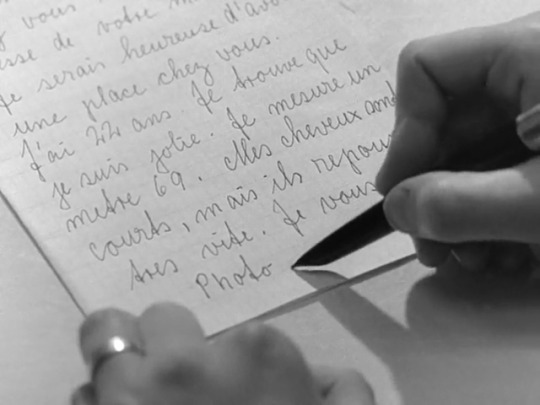 z vous
esse de votre m
Je serais heureuse d'avo
une place chez vous.
J'ai 22 ans. Je trouve que
je suis jolie. Je mesure un
metre 69. Mes cheveux sont
courts, mais ils repous
tres vite. Je vous
Photo